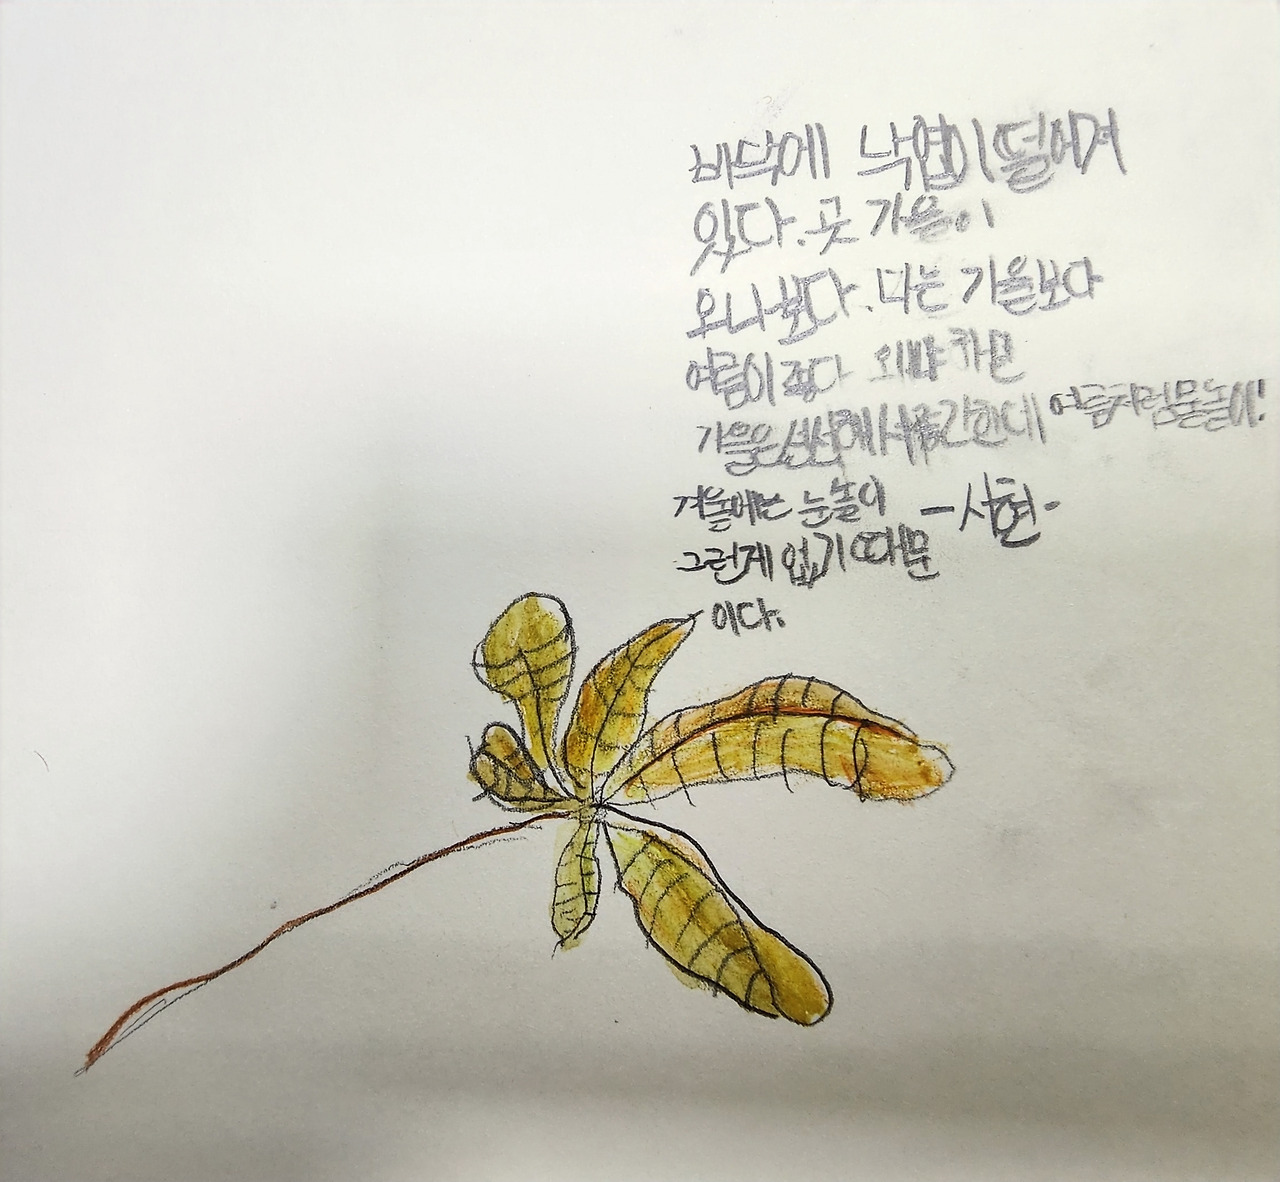 바닥에 낙엽이 떨어져
있다. 곳 가을이
오나보다. 나는 가을보다
여름이 좋다 왜냐하면
가을은 선선해서 시간한데 여름처럼 물놀이!
겨울에는 눈놀이
-서현-
그런게 없기 때문
이다.